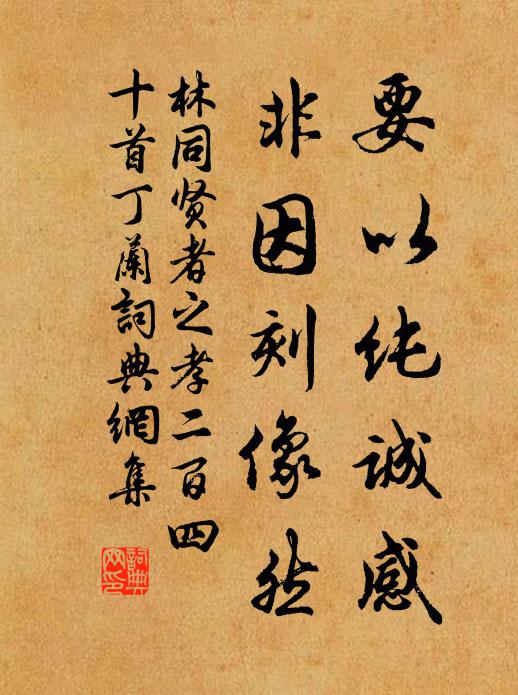 要以纯诚感
非因刻像然
林同贤者之孝二百四
十首丁蘭詞典網集
詞典
网印